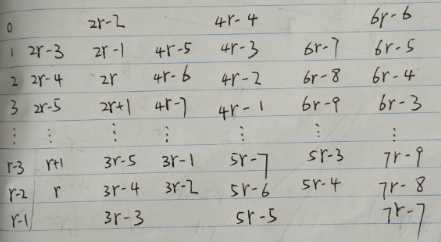 0 2r-2 4r-4 6r-6
1 2r-3 2r-1 4r-5 4r-3 6r-7 6r-5
2 2r-4 2r 4r-6 4r-2 6r-8 6r-4
3 2r-5 2r+1 4r-7 4r-1 6r-9 6r-3
⋮ ⋮ ⋮ ⋮ ⋮ ⋮ ⋮
r-3 r+1 3r-5 3r-1 5r-7 5r-3 7r-9
r-2 r 3r-4 3r-2 5r-6 5r-4 7r-8
r-1 3r-3 5r-5 7r-7